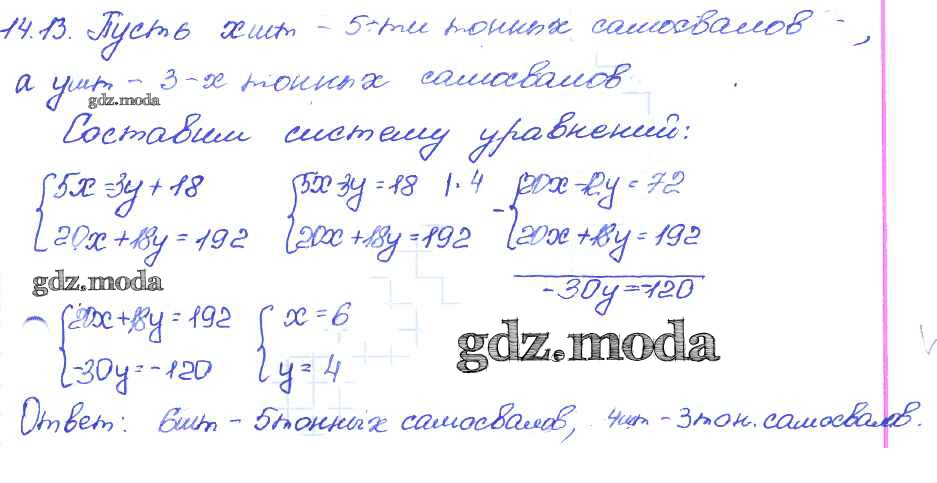 14.13. Пусть x шт - 5-ти тонных самосвалов,
а y шт - 3-х тонных самосвалов
gdz.moda
Составим систему уравнений:
5x = 3y + 18 5x - 3y = 18 | · 4 20x - 12y = 72
20x + 18y = 192 20x + 18y = 192 - 20x + 18y = 192
gdz.moda
-30y = -120
20x + 18y = 192 x = 6
-30y = -120 y = 4
gdz.moda
Ответ: 6шт - 5тонных самосвалов, 4шт - 3тон. самосвалов.